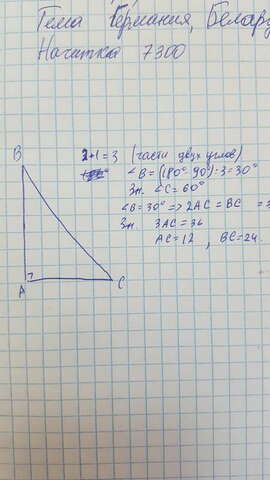 Тема Германия, Белару
Начатка 7300
2+1=3 (части двух углов)
∠B=(180°-90°):3=30°
Зн. ∠C=60°
∠B=30° => 2AC=BC =>
Зн. 3AC=36
AC=12, BC=24.
B
A
C